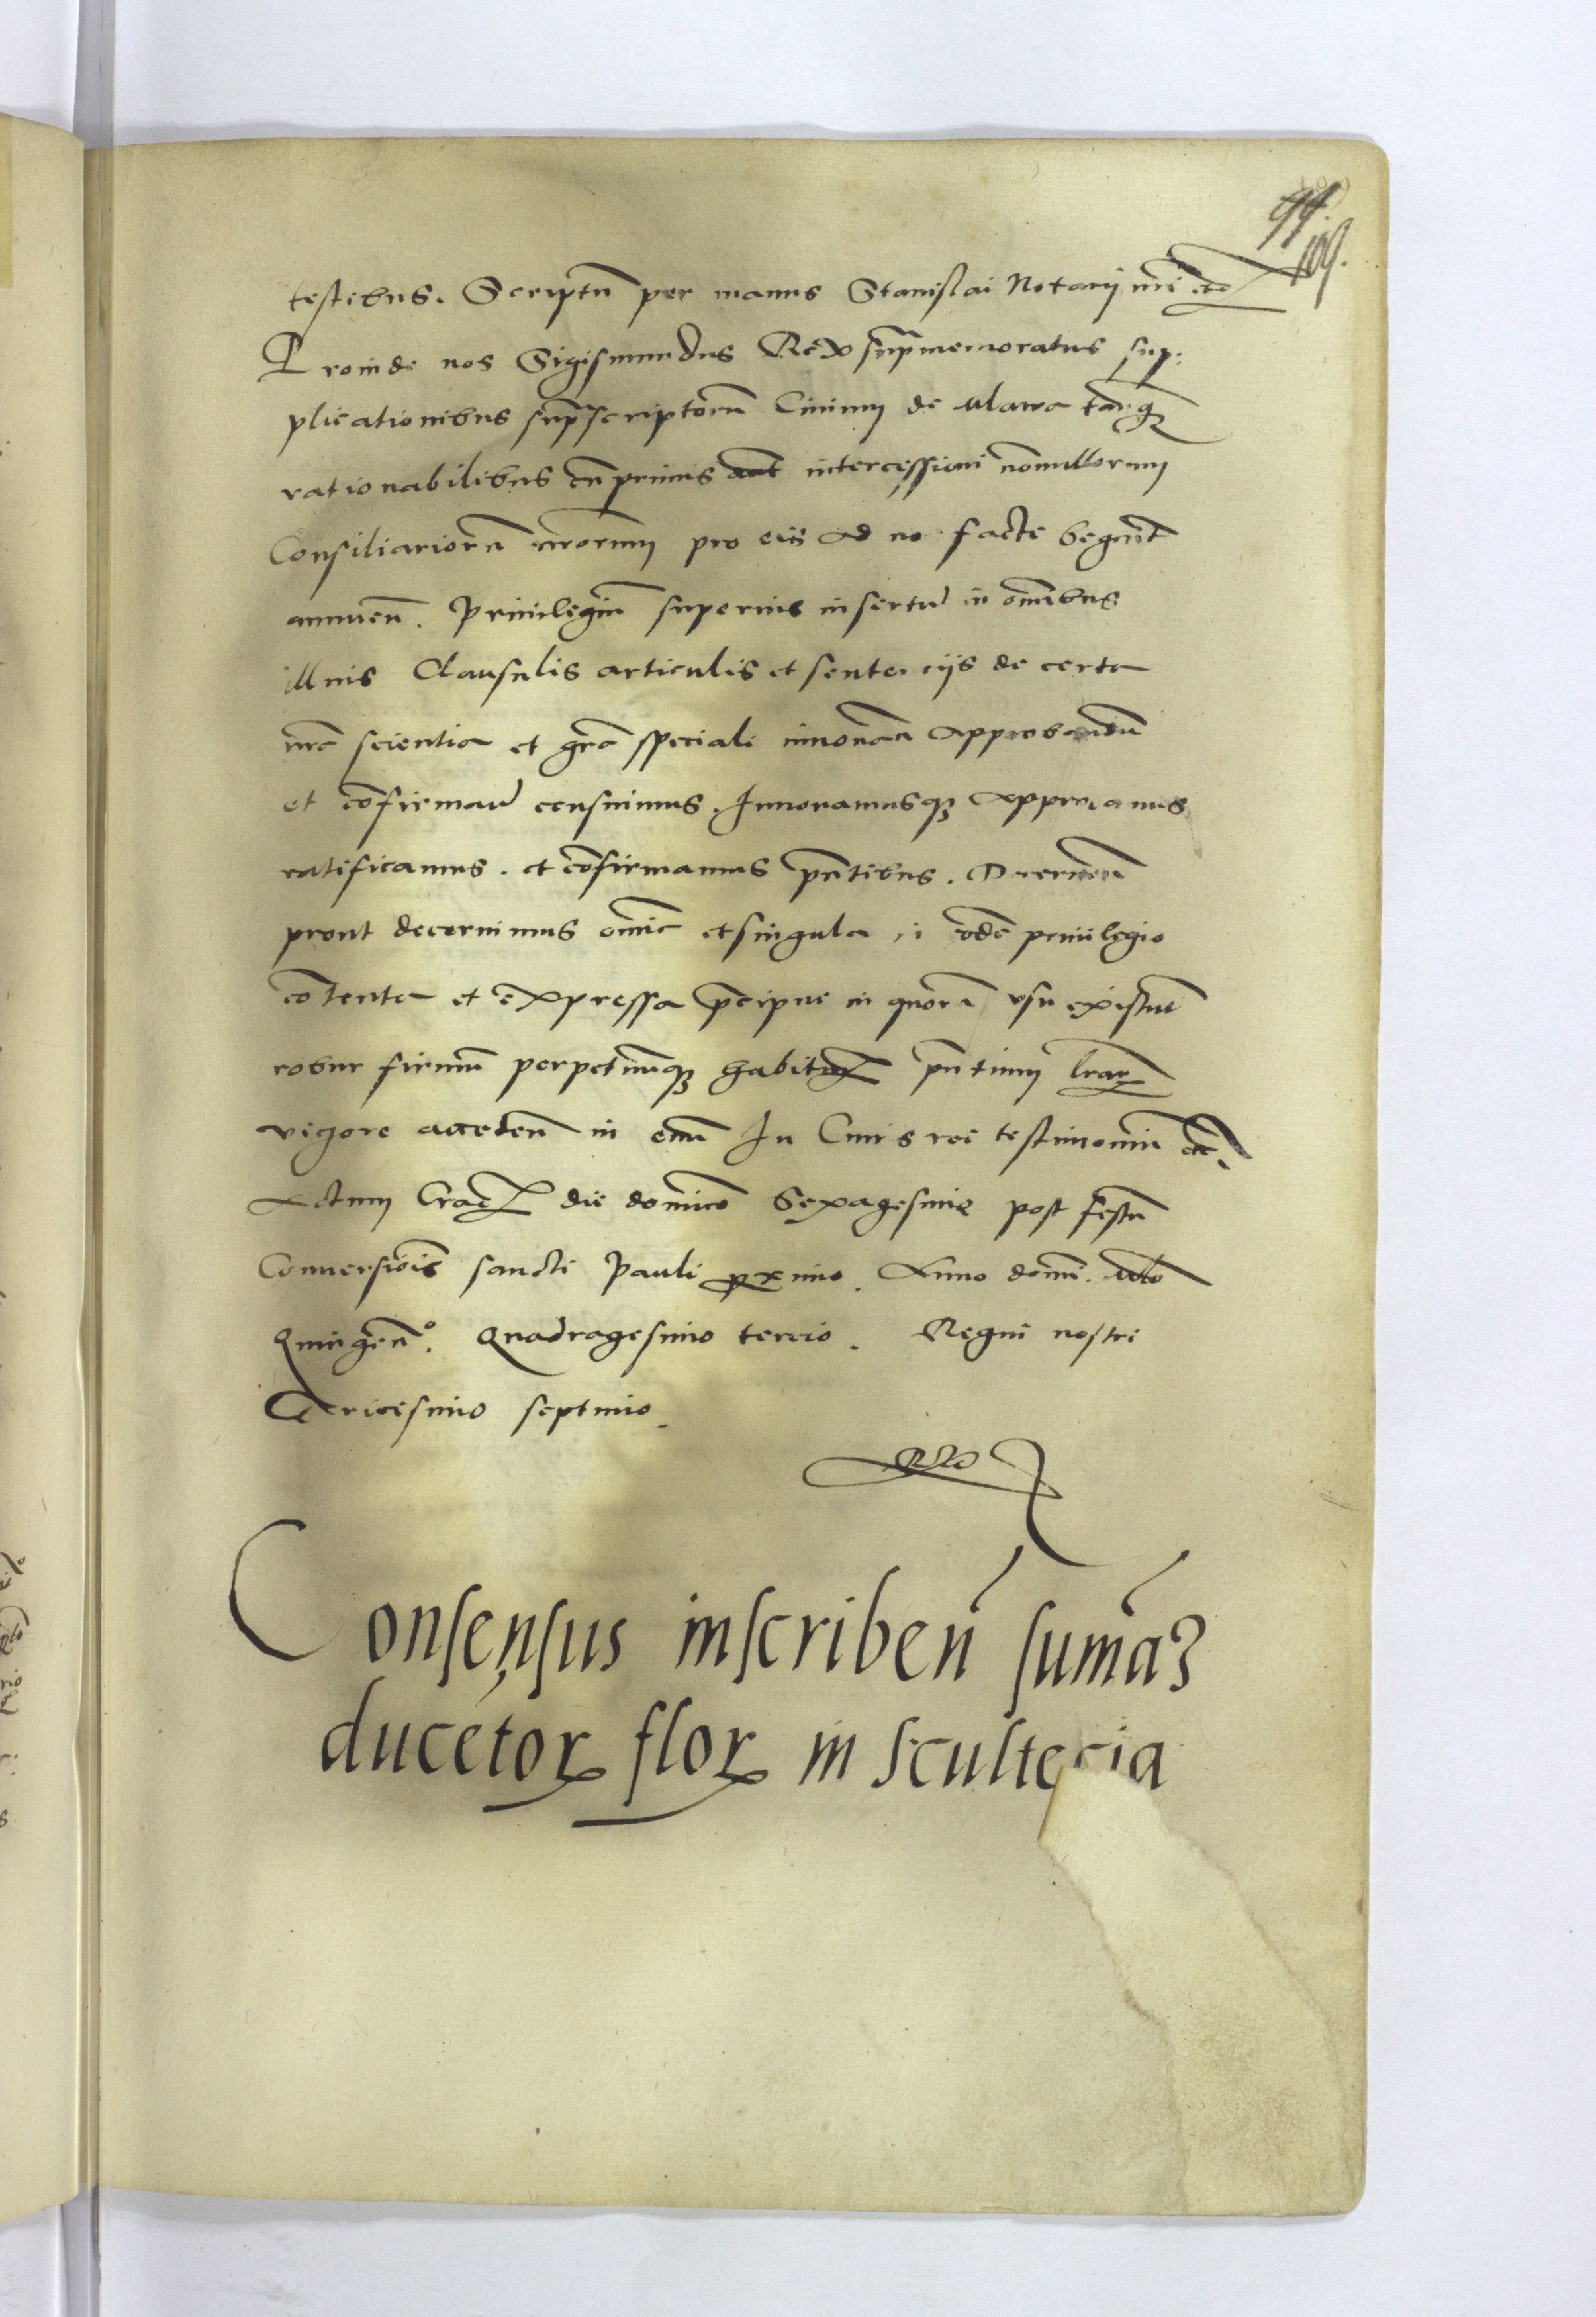 99.
109.
testibus. Scriptu̅ per manus Stanislai Notarii nr̅i etc
Proinde nos Sigismundus Rex supramemoratus sup:
plicationibus supͣscriptoru̅ Civium de Mlawa tanqꝫ
rationabilibus inprimis aut̅ intercessioni nonnullorum
Consiliarioru̅ nr̅orum pro eis ad no facte begnit̅
annuen̅. Privilegiu̅ superius insertu̅ in om̅ibus
illius Clausulis articulis et sente ciis de certa
nr̅a scientia et gr̅a speciali innovan̅ approbandu̅
et co̅firmand̅ censuimus. Innovamusqꝫ appro amus
ratificamus. et co̅firmamus pn̅tibus. Decernen̅
prout decernimus om̅ia et singula i eode̅ privilegio
co̅tenta et expressa p̅cipue in quoru̅ usu existut̅
robur firmu̅ perpetuu̅qꝫ habitur̅ pn̅tium lr̅arꝝ
vigore acceden̅ in evu̅ In Cuius rei testimoniu̅ etc̅.
Actum Cracꝫ die dominico Sexagesime post festu̅
Conversio̅is sancti Pauli proximo. Anno domi̅. Mlo̅
Quingen̅º. Quadragesimo tercio. Regni nostri
Tricesimo septimo.
Consensus inscriben̅ sum̅aꝫ
ducetorꝝ florꝝ in scultecia